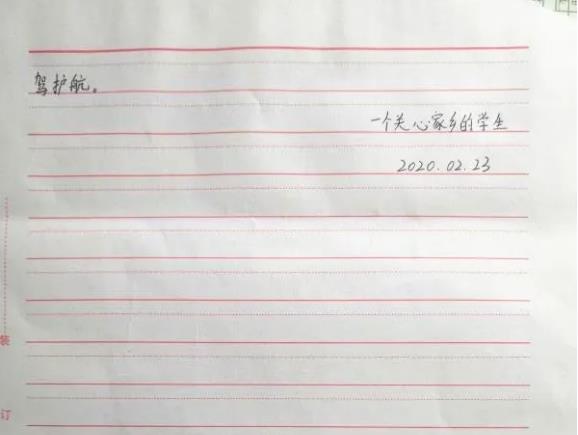 驾护航。
一个关心家乡的学生
2020.02.23
装
订